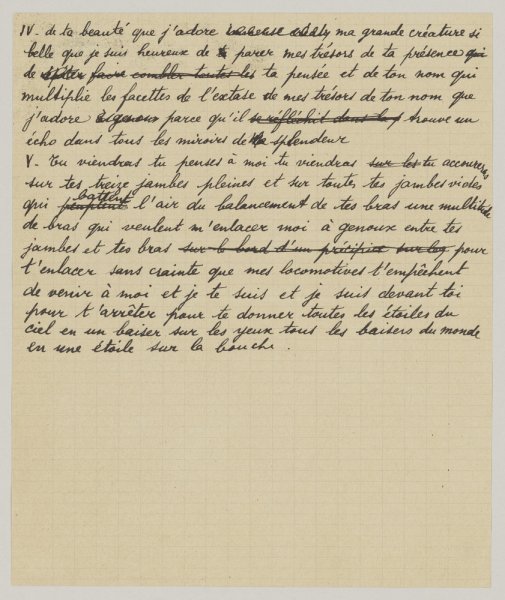 IV - de ta beauté que j'adore ma grande créature si
belle que je suis heureux de parer mes trésors de ta présence qui
de faire combler toutes les ta pensée et de ton nom qui
multiplie les facettes de l'extase de mes trésors de ton nom que
j'adore à genoux parce qu'il se réfléchit dans trouve un
écho dans tous les miroirs de splendeur
V - Tu viendras tu penses à moi tu viendras sur les tu accoureras
sur tes treize jambes pleines et sur toutes tes jambes vides
qui peuplent battent l'air du balancement de tes bras une multitude
de bras qui veulent m'enlacer moi à genoux entre tes
jambes et tes bras sur le bord d'un précipice sur pour
t'enlacer sans crainte que mes locomotives t'empêchent
de venir à moi et je te suis et je suis devant toi
pour t'arrêter pour te donner toutes les étoiles du
ciel en un baiser sur les yeux tous les baisers du monde
en une étoile sur la bouche .